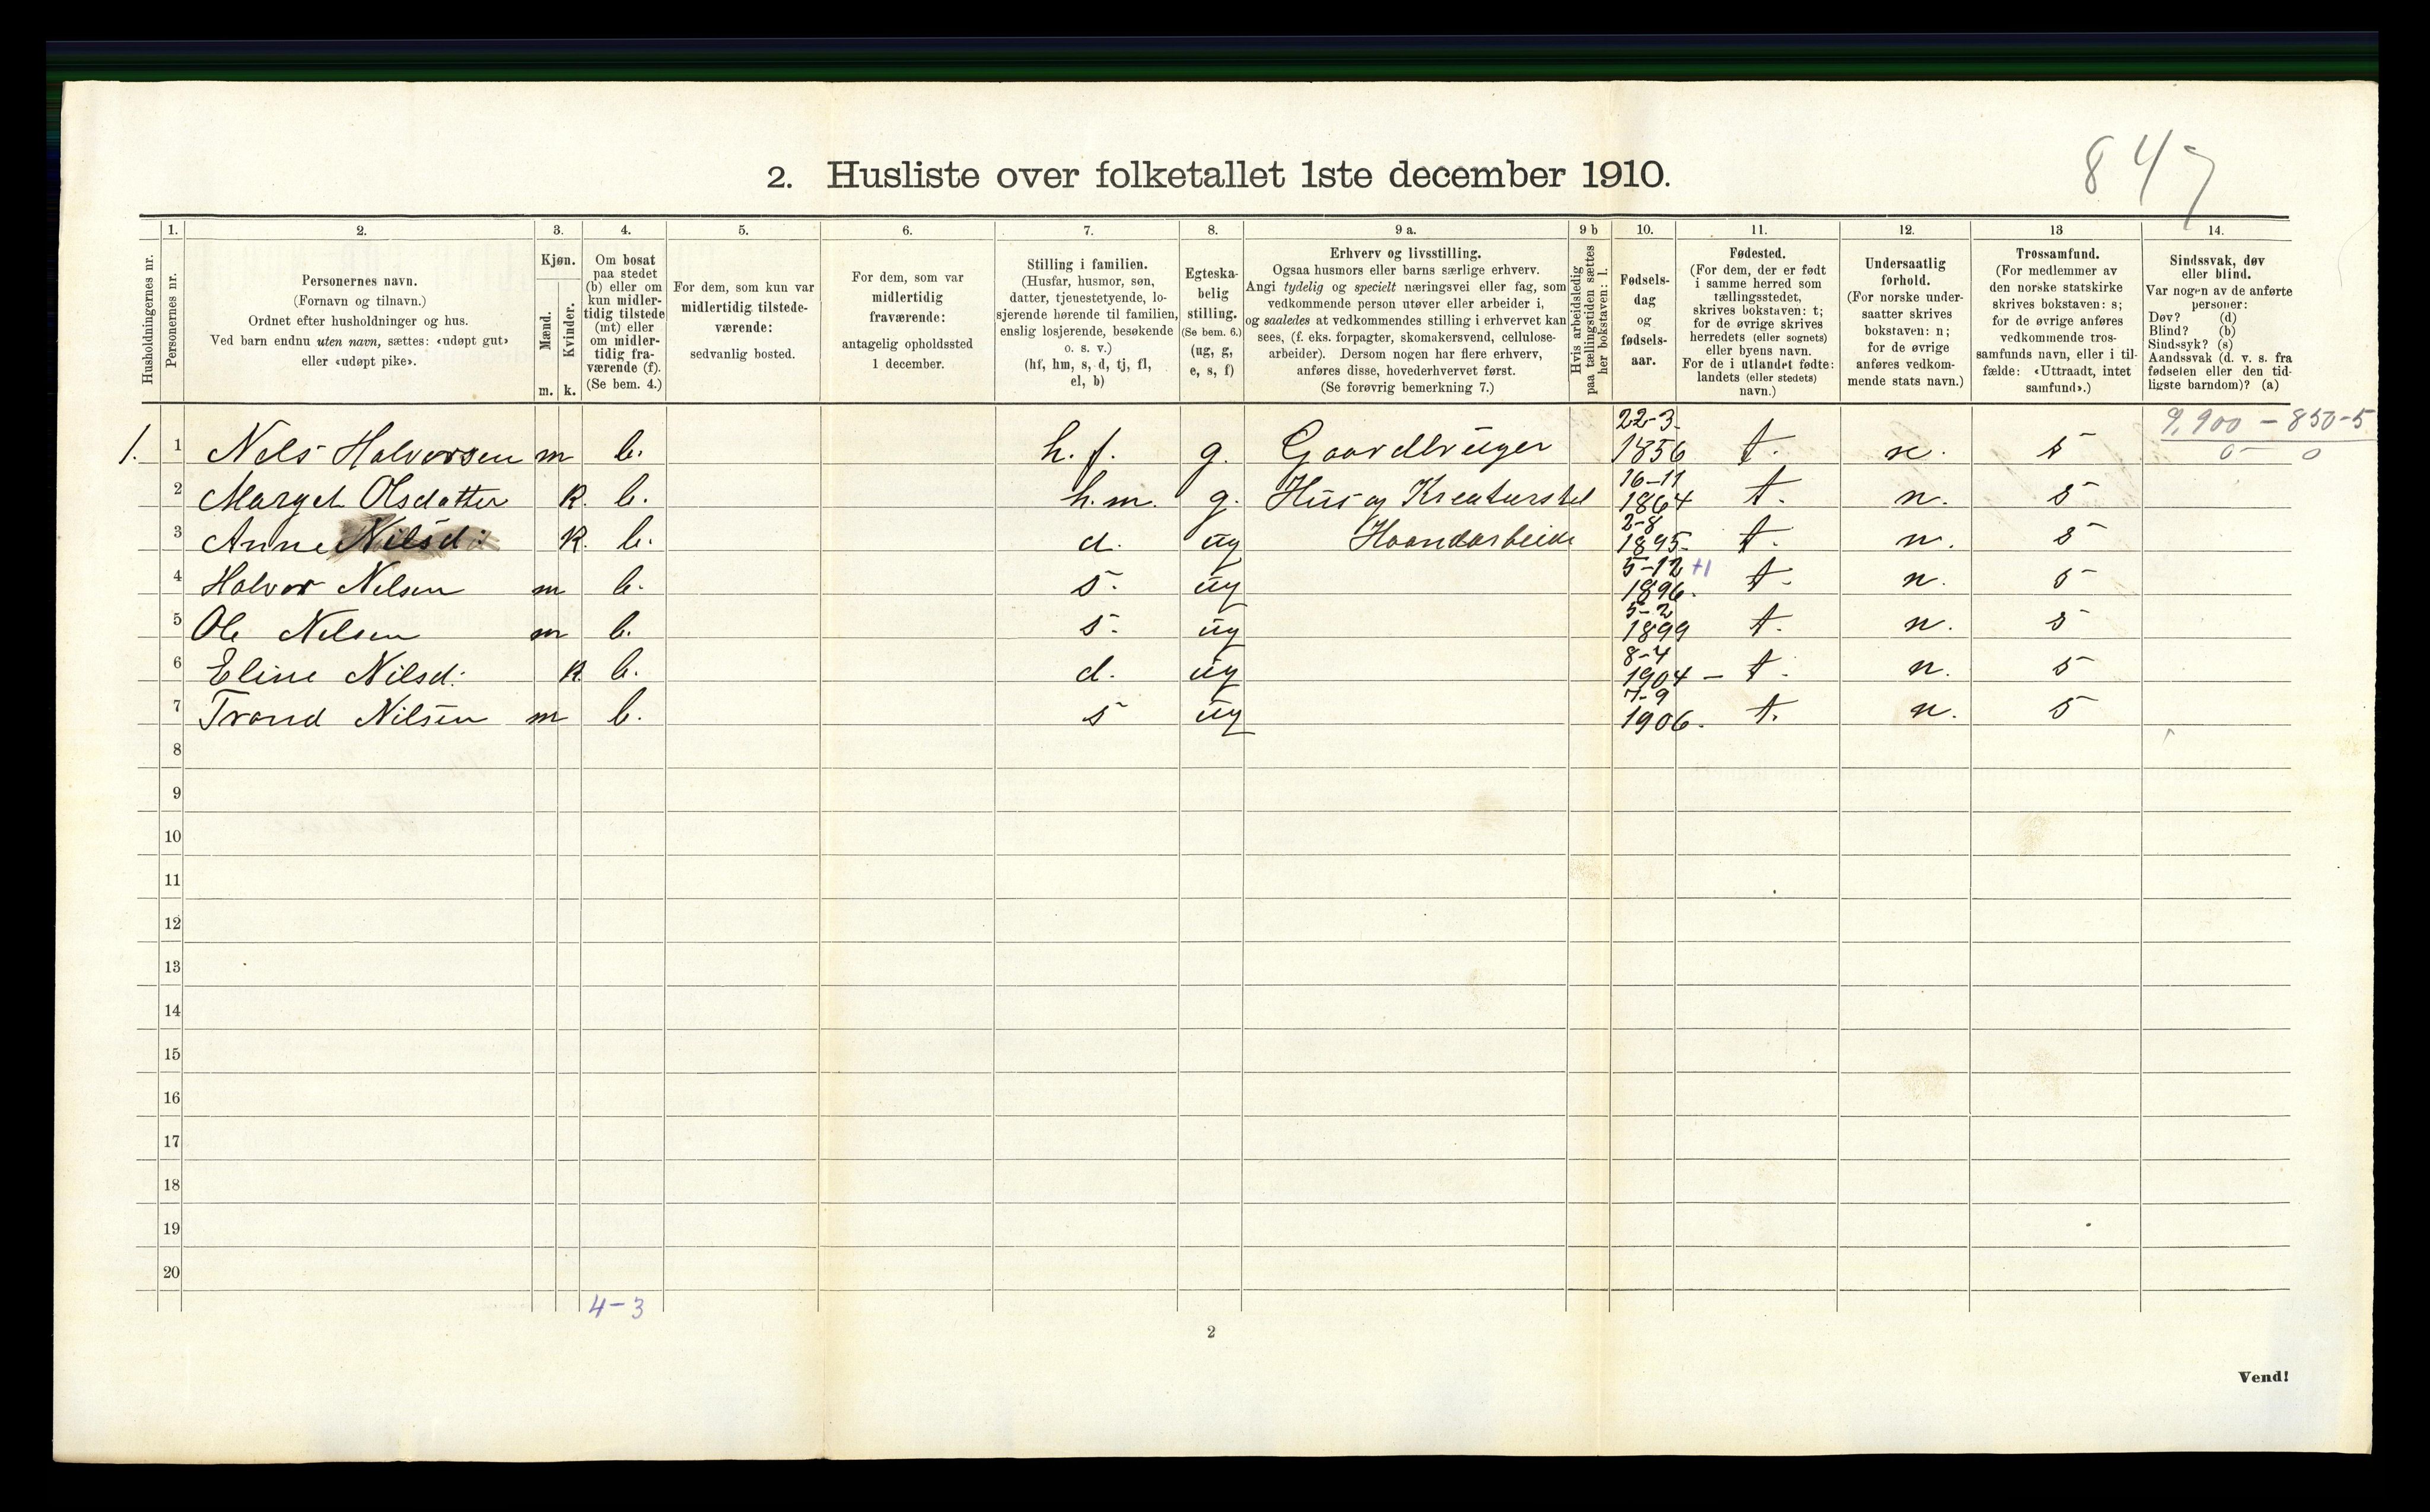 847
2. Husliste over folketallet 1ste december 1910.
Husholdningernes nr.
1. Personernes nr.
2. Personernes navn.
(Fornavn og tilnavn.)
Ordnet efter husholdninger og hus.
Ved barn endnu uten navn, sættes: «udøpt gut»
eller «udøpt pike».
3. Kjøn.
Mænd. m.
Kvinder. k.
4. Om bosat
paa stedet
(b) eller om
kun midler-
tidig tilstede
(mt) eller
om midler-
tidig fra-
værende (f).
(Se bem. 4.)
5. For dem, som kun var
midlertidig tilstede-
værende:
sedvanlig bosted.
6. For dem, som var
midlertidig
fraværende:
antagelig opholdssted
1 december.
7. Stilling i familien.
(Husfar, husmor, søn,
datter, tjenestetyende, lo-
sjerende hørende til familien,
enslig losjerende, besøkende
o. s. v.)
(hf, hm, s, d, tj, fl,
el, b)
8. Egteska-
belig
stilling.
(Se bem. 6.)
(ug, g,
e, s, f)
9 a. Erhverv og livsstilling.
Ogsaa husmors eller barns særlige erhverv.
Angi tydelig og specielt næringsvei eller fag, som
vedkommende person utøver eller arbeider i,
og saaledes at vedkommendes stilling i erhvervet kan
sees, (f. eks. forpagter, skomakersvend, cellulose-
arbeider). Dersom nogen har flere erhverv,
anføres disse, hovederhvervet først.
(Se forøvrig bemerkning 7.)
9 b Hvis arbeidsledig
paa tællingstiden sættes
her bokstaven: l.
10. Fødsels-
dag
og
fødsels-
aar.
11. Fødested.
(For dem, der er født
i samme herred som
tællingsstedet,
skrives bokstaven: t;
for de øvrige skrives
herredets (eller sognets)
eller byens navn.
For de i utlandet fødte:
landets (eller stedets)
navn.)
12. Undersaatlig
forhold.
(For norske under-
saatter skrives
bokstaven: n;
for de øvrige
anføres vedkom-
mende stats navn.)
13 Trossamfund.
(For medlemmer av
den norske statskirke
skrives bokstaven: s;
for de øvrige anføres
vedkommende tros-
samfunds navn, eller i til-
fælde: «Uttraadt, intet
samfund».)
14. Sindssvak, døv
eller blind.
Var nogen av de anførte
personer:
Døv? (d)
Blind? (b)
Sindssyk? (s)
Aandssvak (d. v. s. fra
fødselen eller den tid-
ligste barndom)? (a)
9,900 - 850-5
0 0
1. 1 Nels Halvorsen m b. h.f. g. Gaardbruger 22-3- 1856 t. n. s
2 Marget Olsdatter k. b. h.m. g. Hus og Kreaturstel 16-11 1864 t. n. s
3 Anne Nilsd: k. b. d. ug Haandarbeide 2-8 1895- t. n. s
4 Halvor Nelsen m b. s. ug 5-12 +1 1896. t. n. s
5 Ole Nelsen m b. s. ug 5-2 1899 t. n. s
6 Eline Nilsd: k b. d. ug 8-4 1904 - t. n. s
7 Trond Nilsen m b. s ug 7-9 1906. t. n. s
8
9
10
11
12
13
14
15
16
17
18
19
20
4-3
2
Vend!